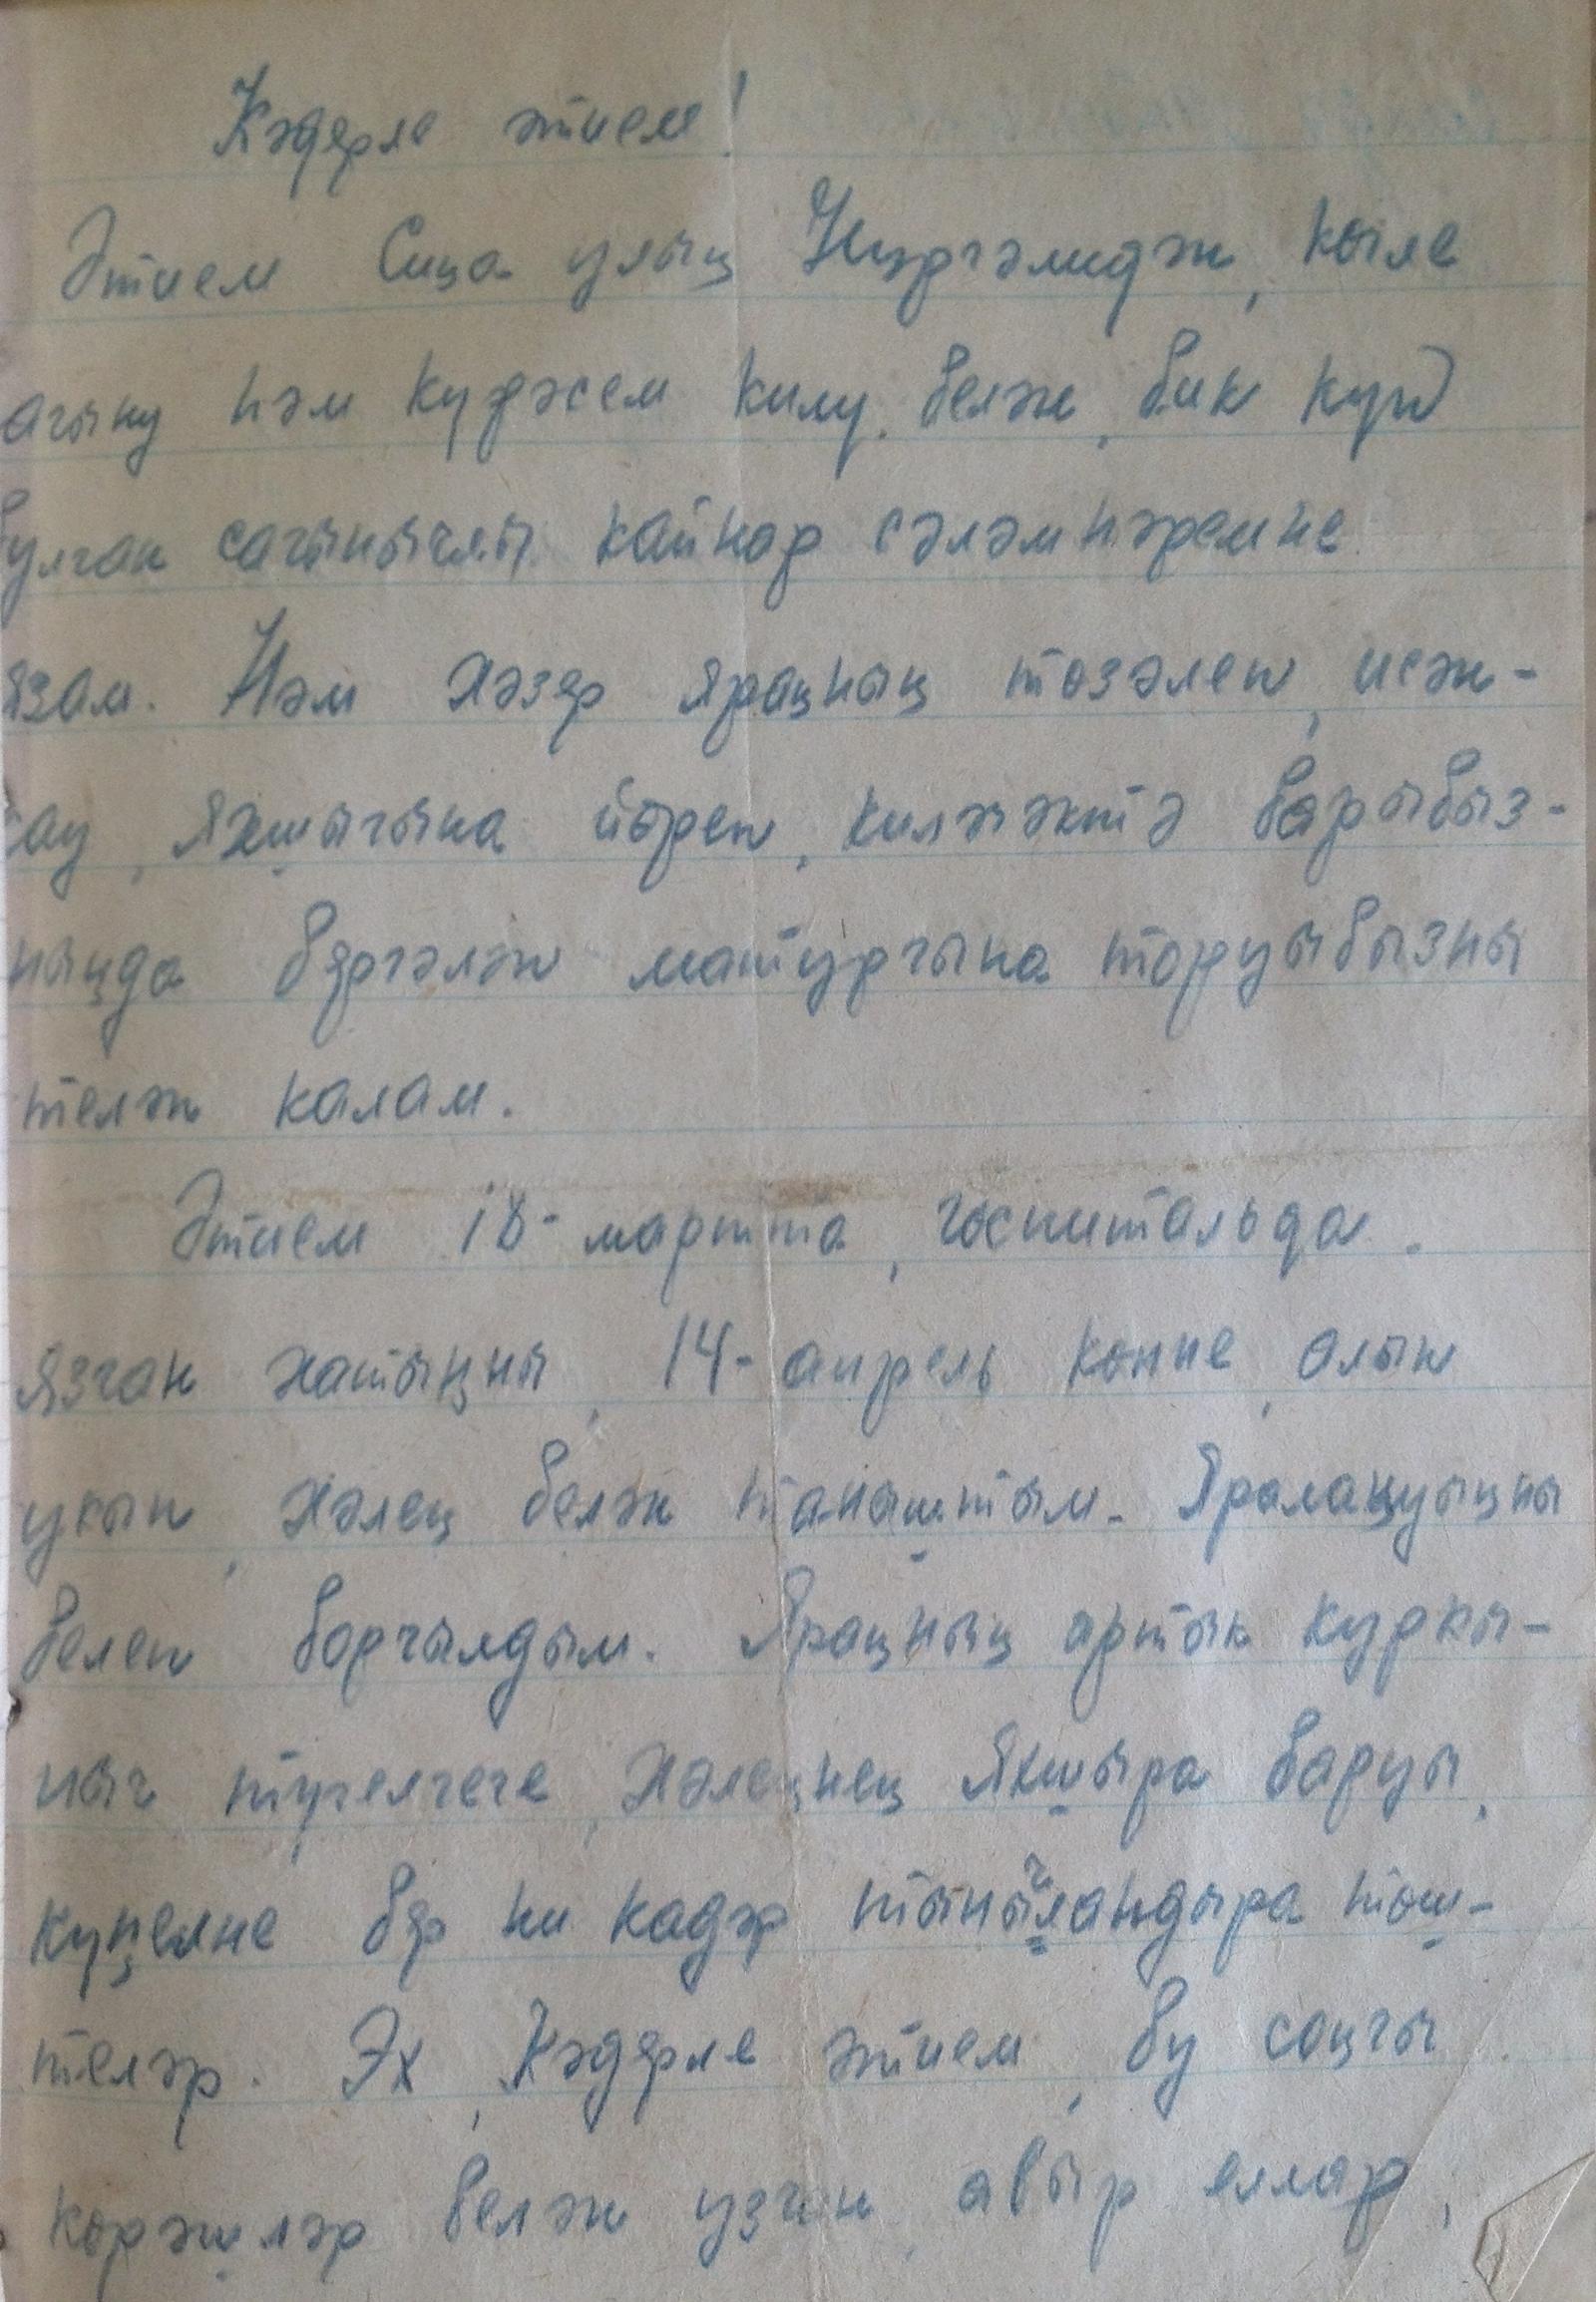 Кәдерле әтием!
Әтием Сиңа улың Нургәлидән, көле
агыну һәм күрәсем килү белән, бик күп
булган сагынычлы кайнар сәләмнәремне
язам. Һәм хәзер яраңның төзәлеп, исән-
сау, яхшыгына йөреп, киләчәктә барыбыз-
ныңда бергәләп матургына торуыбызны
теләп калам.
Әтием 18-мартта, госпитальда
язган хатыңны, 14-апрель көнне, алып
укып, хәлең белән таныштым. Яралаңуыңны
белеп борчылдым. Яраңның артык куркы-
ныч түгеллеге, хәлеңнең яхшыра баруы,
күңелне бер ни кадәр тынычландыра төш-
теләр. Эх, Кәдерле әтием, бу соңгы
көрәшләр белән узган авыр еллар,